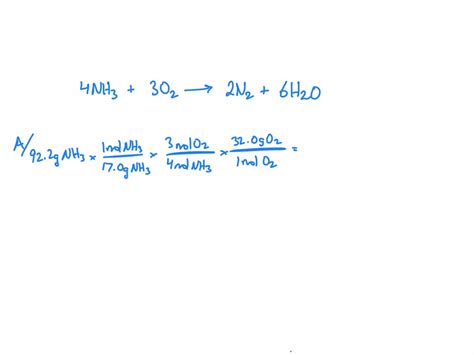 4NH₃ + 3O₂ → 2N₂ + 6H2O
A/ 92.2g NH₃ × 1mol NH₃ / 17.0g NH₃ × 3 mol O₂ / 4 mol NH₃ × 32.0g O₂ / 1 mol O₂ =